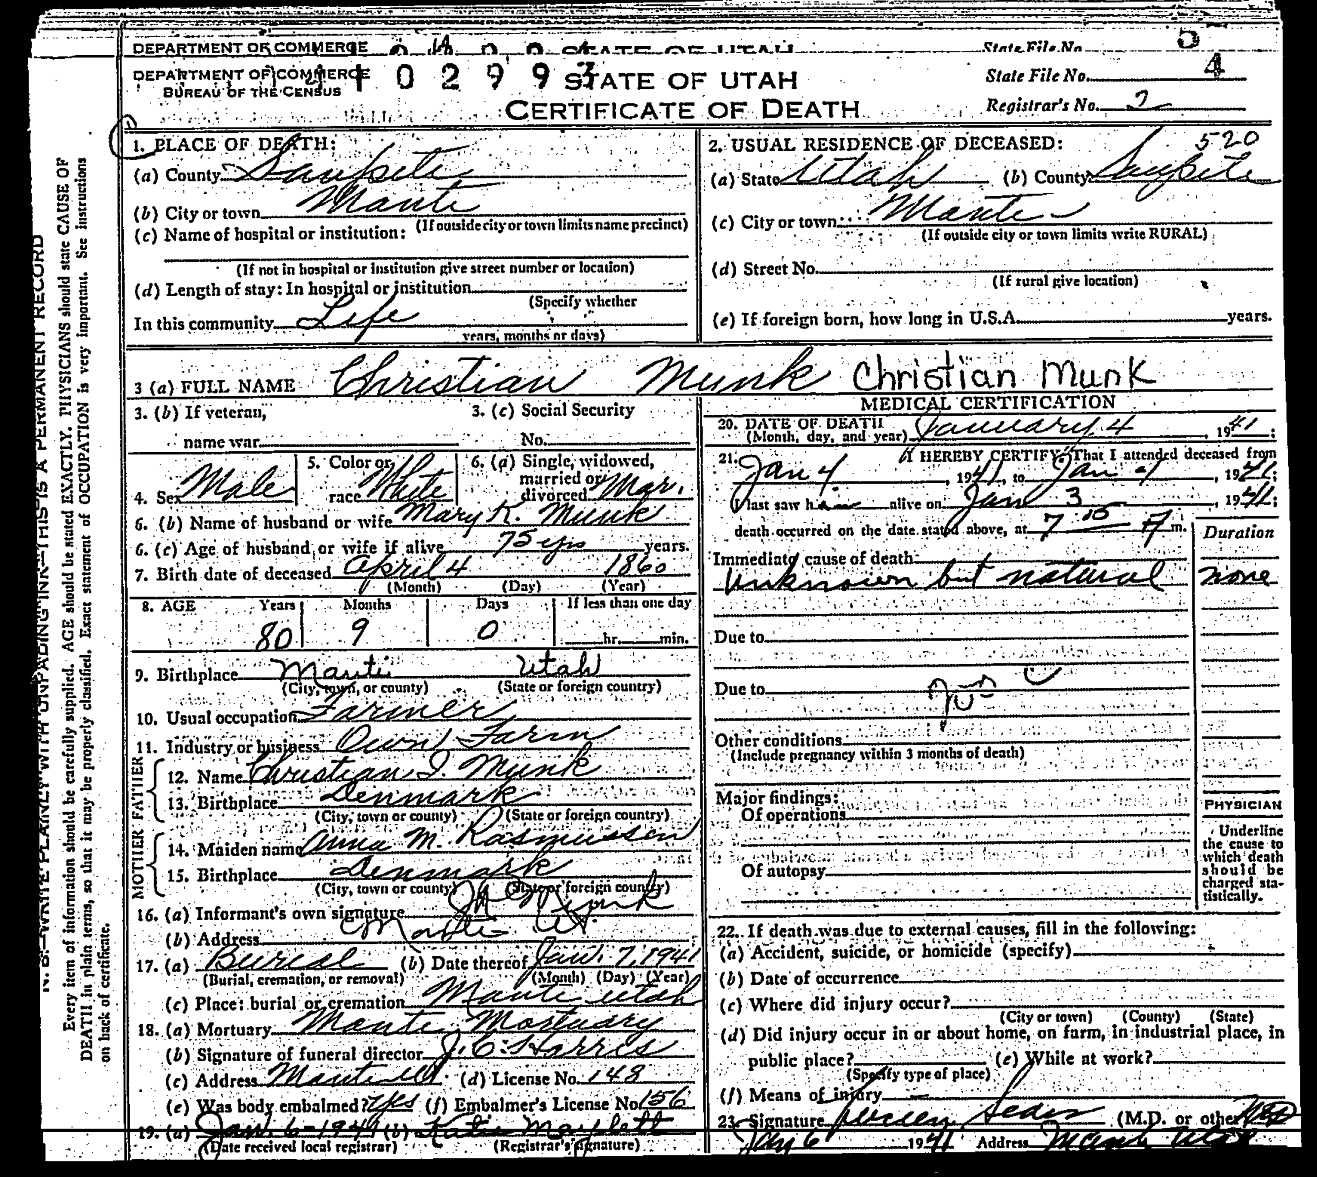 DEPARTMENT OF COMMERCE STATE OF UTAH State File No. 5
DEPARTMENT OF COMMERCE 02993 STATE OF UTAH State File No. 4
BUREAU OF THE CENSUS
CERTIFICATE OF DEATH Registrar's No. 2
N. B.—WRITE PLAINLY WITH UNFADING INK—THIS IS A PERMANENT RECORD
Every item of information should be carefully supplied. AGE should be stated EXACTLY. PHYSICIANS should state CAUSE OF
DEATH in plain terms, so that it may be properly classified. Exact statement of OCCUPATION is very important. See instructions
on back of certificate.
1. PLACE OF DEATH:
(a) County Sanpete
(b) City or town Manti
(If outside city or town limits name precinct)
(c) Name of hospital or institution:
(If not in hospital or institution give street number or location)
(d) Length of stay: In hospital or institution
(Specify whether
In this community Life
years, months or days)
2. USUAL RESIDENCE OF DECEASED: 520
(a) State Utah (b) County Sanpete
(c) City or town Manti
(If outside city or town limits write RURAL)
(d) Street No.
(If rural give location)
(e) If foreign born, how long in U.S.A. years.
3 (a) FULL NAME Christian Munk Christian Munk
3. (b) If veteran, 3. (c) Social Security
name war No.
4. Sex Male 5. Color or race White 6. (a) Single, widowed, married or divorced Mar.
6. (b) Name of husband or wife Mary K. Munk
6. (c) Age of husband or wife if alive 75 yrs years.
7. Birth date of deceased April 4 1860
(Month) (Day) (Year)
8. AGE Years Months Days If less than one day
80 9 0 hr. min.
9. Birthplace Manti Utah
(City, town, or county) (State or foreign country)
10. Usual occupation Farmer
11. Industry or business Own Farm
FATHER
12. Name Christian I. Munk
13. Birthplace Denmark
(City, town, or county) (State or foreign country)
MOTHER
14. Maiden name Anna M. Rasmussen
15. Birthplace Denmark
(City, town or county) (State or foreign country)
16. (a) Informant's own signature Munk
(b) Address Manti Ut.
17. (a) Burial (b) Date thereof Jan. 7, 1941
(Burial, cremation, or removal) (Month) (Day) (Year)
(c) Place: burial or cremation Manti Utah
18. (a) Mortuary Manti Mortuary
(b) Signature of funeral director J. C. Harris
(c) Address Manti Ut (d) License No. 148
(e) Was body embalmed? Yes (f) Embalmer's License No. 156
19. (a) Jan. 6-1941 (b)
(Date received local registrar) (Registrar's signature)
MEDICAL CERTIFICATION
20. DATE OF DEATH
(Month, day, and year) January 4, 1941;
21. I HEREBY CERTIFY, That I attended deceased from
Jan 4, 1941, to Jan 4, 1941;
I last saw him alive on Jan 3 1941;
death occurred on the date stated above, at 7 15 A m.
Duration
Immediate cause of death
Unknown but natural none
Due to
Due to
Other conditions
(Include pregnancy within 3 months of death)
Major findings:
Of operations
Of autopsy
PHYSICIAN
Underline
the cause to
which death
should be
charged sta-
tistically.
22. If death was due to external causes, fill in the following:
(a) Accident, suicide, or homicide (specify)
(b) Date of occurrence
(c) Where did injury occur?
(City or town) (County) (State)
(d) Did injury occur in or about home, on farm, in industrial place, in
public place? (e) While at work?
(Specify type of place)
(f) Means of injury
23. Signature (M.D. or other) MD
Jan 6 1941 Address Manti Utah